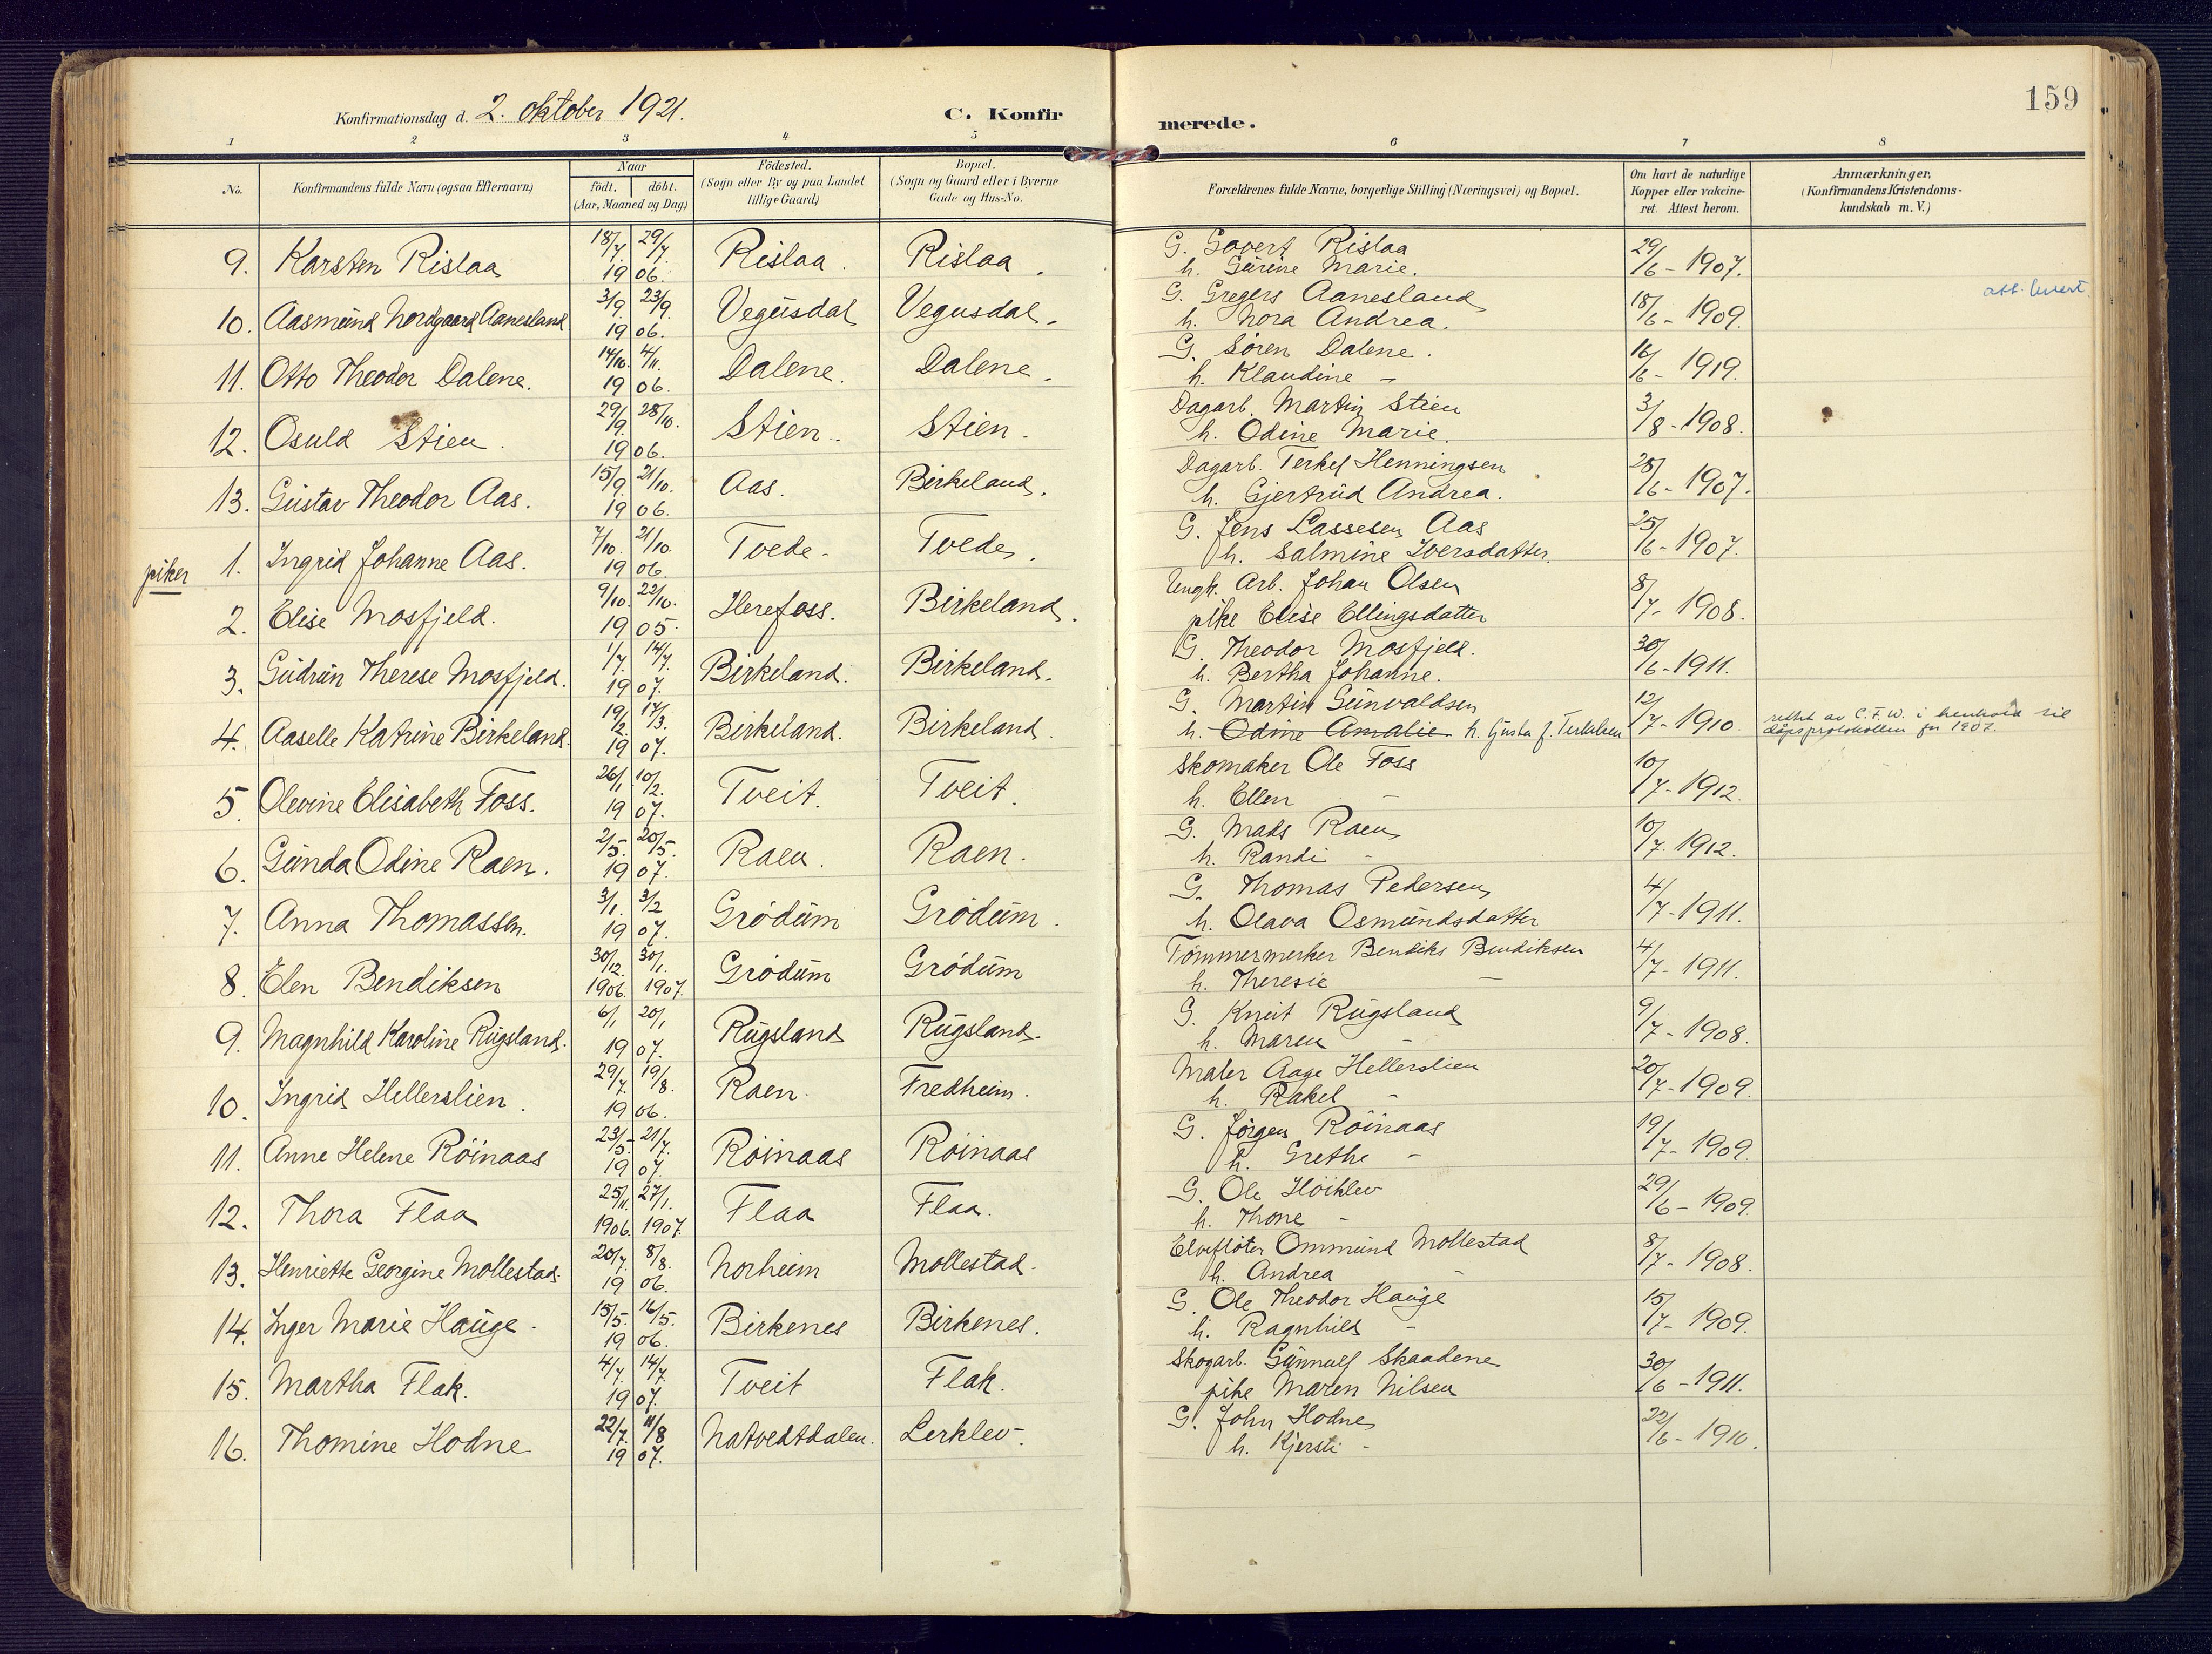 159
Konfirmationsdag d. 2. oktober 1921.
C. Konfirmerede.
1 2 3 4 5 6 7 8
No.
Konfirmandens fulde Navn (ogsaa Efternavn)
Naar
födt. döbt.
(Aar, Maaned og Dag)
Födested.
(Sogn eller By og paa Landet
tillige Gaard)
Bopæl.
(Sogn og Gaard eller i Byerne
Gade og Hus-No.
Forældrenes fulde Navne, borgerlige Stilling (Næringsvei) og Bopæl.
Om havt de naturlige
Kopper eller vakcine-
ret. Attest herom.
Anmærkninger.
(Konfirmandens Kristendoms-
kundskab m. V.)
9. Karsten Rislaa 18/7. 29/7. 1906. Rislaa. Rislaa. G. Govert Rislaa 29/6 - 1907.
h. Gurine Marie.
10. Aasmund Nordgaard Aanesland 3/9. 23/9. 1906. Vegusdal Vegusdal. G. Gregers Aanesland 18/6 - 1909. att. levert.
h. Nora Andrea.
11. Otto Theodor Dalene. 14/10. 4/11. 1906. Dalene. Dalene. G. Søren Dalene. 16/6 - 1919.
h. Klaudine -
12. Osuld Stien. 29/9. 28/10. 1906. Stien. Stien. Dagarb. Martin Stien 3/8 - 1908.
h. Odine Marie.
13. Gustav Theodor Aas. 15/9. 21/10. 1906. Aas. Birkeland. Dagarb. Terkel Henningsen 28/6 - 1907.
h. Gjertrud Andrea.
piker
1. Ingrid Johanne Aas. 7/10. 21/10. 1906. Tvede. Tvede. G. Jens Lassesen Aas 25/6 - 1907.
h. Salmine Iversdatter.
2. Elise Mosfjeld. 9/10. 22/10. 1905. Herefoss. Birkeland. Ungk. Arb. Johan Olsen 8/7 - 1908.
pike Elise Ellingsdatter
3. Gudrun Therese Mosfjeld. 1/7. 14/7. 1907. Birkeland. Birkeland. G. Theodor Mosfjeld. 30/6 - 1911.
h. Bertha Johanne.
4. Aaselle Katrine Birkeland. 19/2. 17/3. 1907. Birkeland. Birkeland. G. Martin Gunvaldsen 12/7 - 1910. rettet av C.F.W. i henhold til
h. Odine Amalie h. Gusta f. Terkelsen dåpsprotokollen for 1907.
5. Olevine Elisabeth Foss. 26/1. 10/2. 1907. Tveit. Tveit. Skomaker Ole Foss 10/7 - 1912.
h. Ellen -
6. Gunda Odine Raen. 2/5. 20/5. 1907. Raen. Raen. G. Mads Raen 10/7. 1912.
h. Randi -
7. Anna Thomassen. 3/1. 3/2 1907. Grødum Grødum. G. Thomas Pedersen 4/7 - 1911.
h. Olava Osmundsdatter
8. Elen Bendiksen 30/12. 1906. 30/1. 1907. Grødum Grødum Tømmermerker Bendiks Bendiksen 4/7 - 1911.
h. Theresie -
9. Magnhild Karoline Rugsland. 6/1 20/1 1907. Rugsland Rugsland. G. Knut Rugsland 9/7 - 1908.
h. Maren -
10. Ingrid Hellerslien. 29/7. 19/8. 1906. Raen. Fredheim. Maler Aage Hellerslien 20/7 - 1909.
h. Rakel -
11. Anne Helene Röinaas 23/5. 21/7. 1907. Röinaas Röinaas G. Jörgen Röinaas 19/7 - 1909.
h. Grethe -
12. Thora Flaa 25/11. 1906. 27/1. 1907. Flaa Flaa. G. Ole Höiklev 29/6 - 1909.
h. Thone -
13. Henriette Georgine Mollestad. 20/7. 8/8. 1906. Norheim Mollestad. Elvefløter Ommund Mollestad 8/7 - 1908.
h. Andrea -
14. Inger Marie Hauge. 15/5. 16/5. 1906. Birkenes Birkenes. G. Ole Theodor Hauge 15/7 - 1909.
h. Ragnhild -
15. Martha Flak. 4/7. 14/7. 1907. Tveit Flak. Skogarb. Gunnulf Skaadene 30/6 - 1911.
pike Maren Nilsen
16. Thomine Hodne 22/7. 11/8 1907. Natvedtdalen. Lerklev. G. John Hodne 22/6 - 1910.
h. Kjersti -